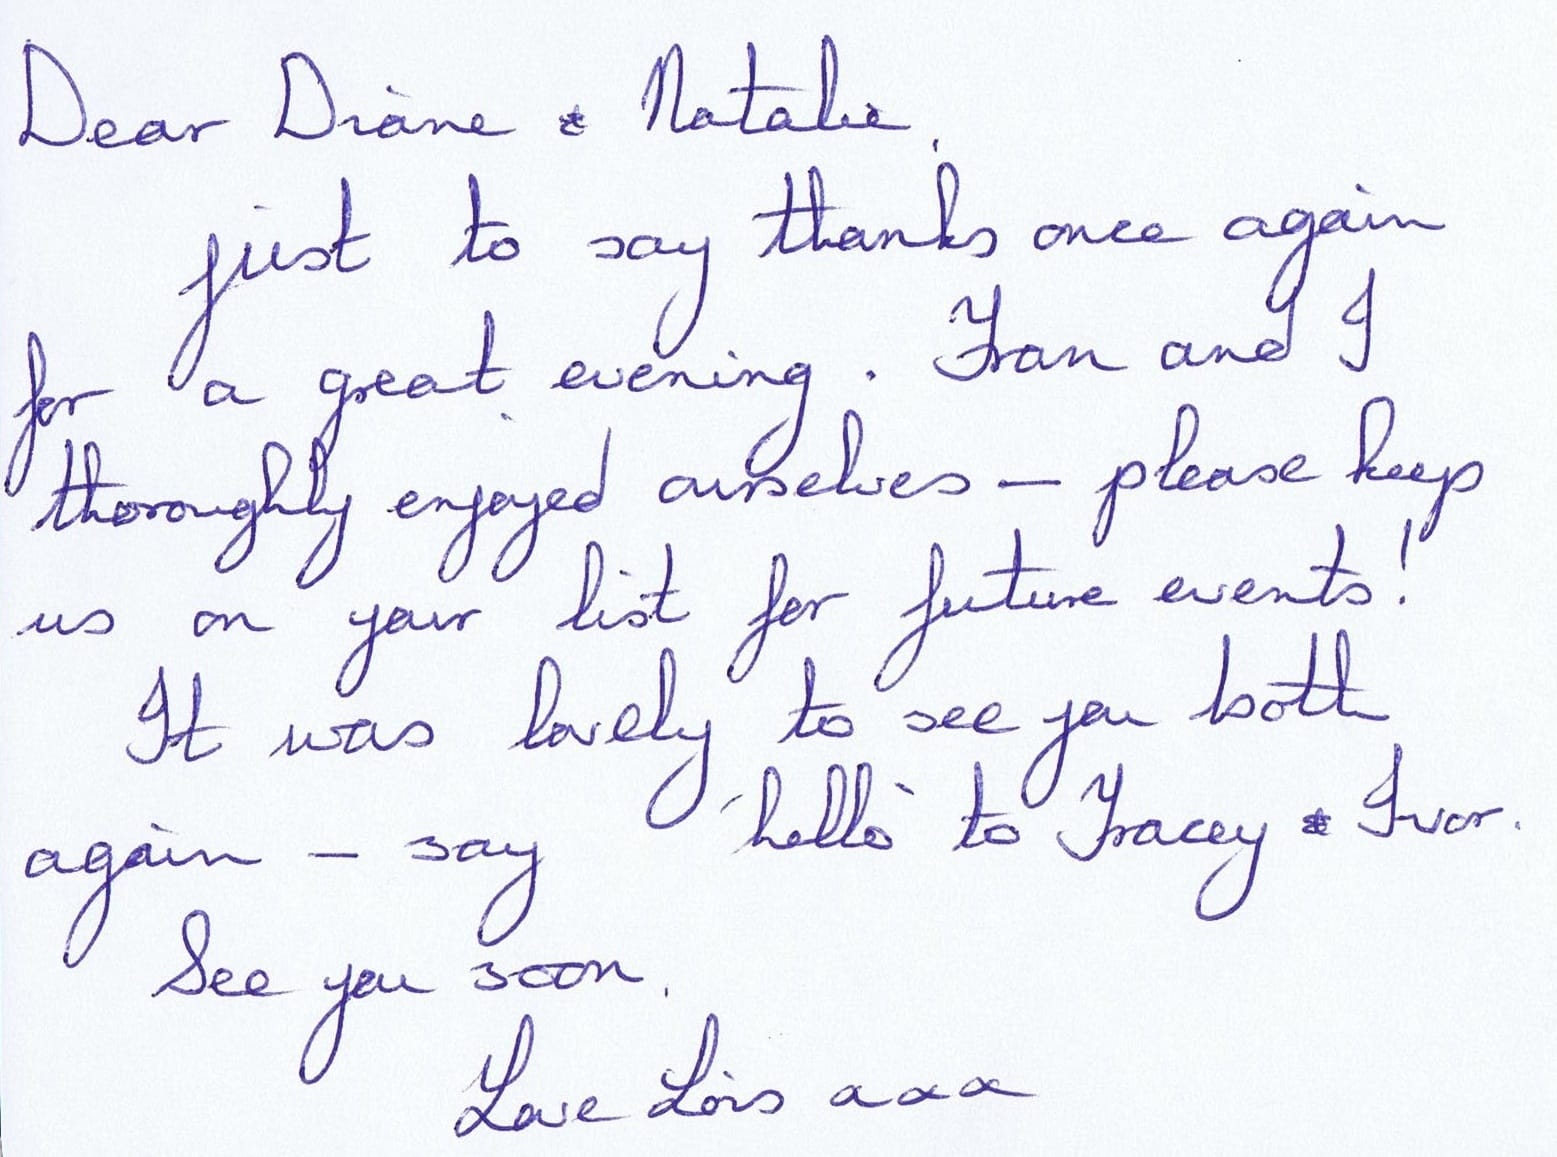 Dear Diane & Natalie,
just to say thanks once again
for a great evening. Fran and I
thoroughly enjoyed ourselves – please keep
us on your list for future events!
It was lovely to see you both
again – say 'hello' to Tracey & Ivor.
See you soon.
Love Lois xxx